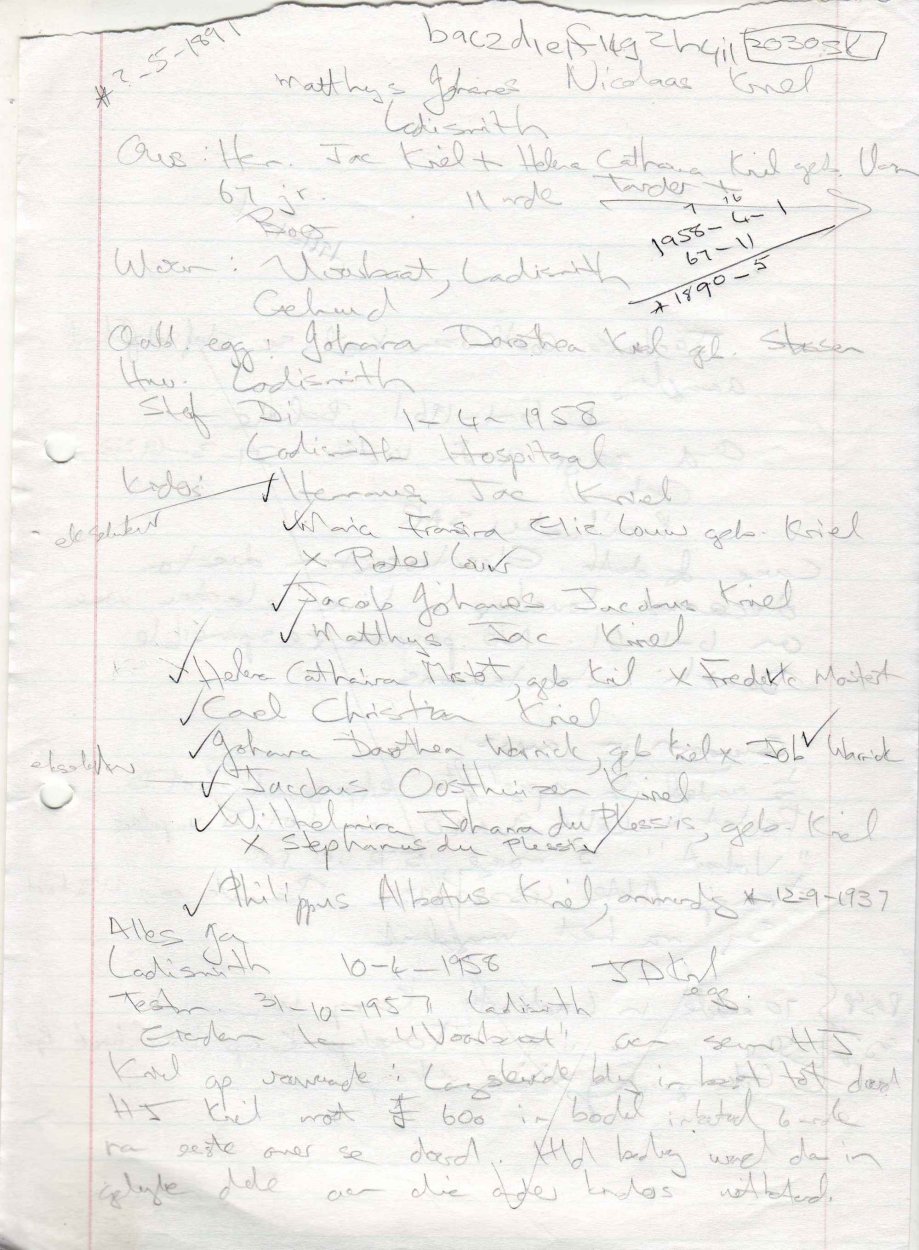 * ?-5-1891
bac2d1e1f14g2h4i1 20303K
Matthys Johannes Nicolaas Kriel
Ladismith
Ous: Her. Jac Kriel + Helena Catharina Kriel geb. Van
67 jr. 11 mde Tonder +
Boer
7 16
1958-4-1
67-11
* 1890-5
Woon: Voorbaat, Ladismith
Gehuud
Oorld. egg: Johanna Dorothea Kriel geb. Stassen
Huw. Ladismith
Sterf Di 1-4-1958
Ladismith Hospitaal
Kinders: Hermanus Jac Kriel
eksekuteur
Maria Fransina Eliz Louw geb. Kriel
x Pieter Louw
Jacob Johannes Jacobus Kriel
Matthys Jac Kriel
Helena Catharina Mostert, geb Kriel x Frederik Mostert
Carel Christian Kriel
Johanna Dorothea Warrick, geb Kriel x Job Warrick
eksekuteur
Jacobus Oosthuizen Kriel
Wilhelmina Johanna du Plessis, geb. Kriel
x Stephanus du Plessis
Philippus Albertus Kriel, onmondig * 12-9-1937
Alles Ja
Ladismith 10-4-1958 JD Kriel
egg.
Testm. 31-10-1957 Ladismith
Eiendom "Voorbaat" aan seun HJ
Kriel op voorwaarde: Langslewende bly in besit tot dood
HJ Kriel moet £ 600 in boedel inbetaal 6 mde
na eerste ouer se dood. Hld bedrag word dan in
gelyke dele aan die ander kinders uitbetaal.